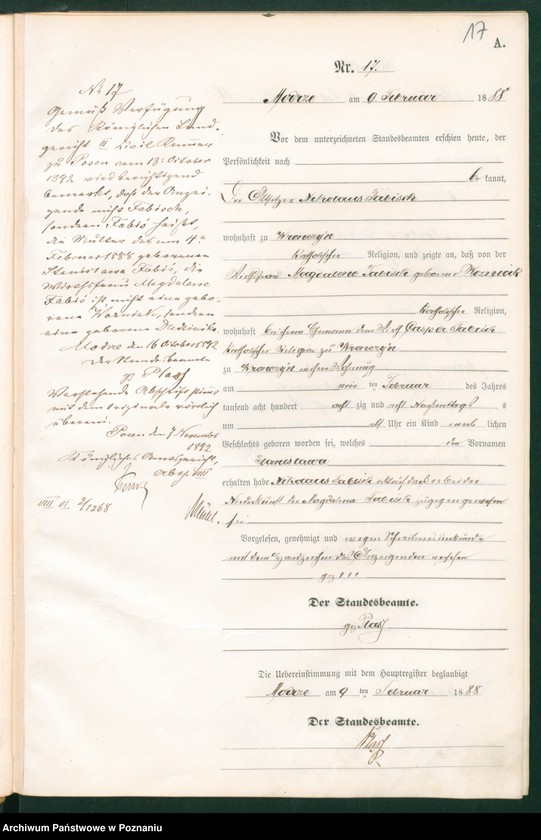 17
A.
Nr. 17.
Modrze am 9 Februar 1888
Vor dem unterzeneten Standesbeamten erschien heute, der
Persönlichkeit nach
be kannt,
Der Nikolaus Fabisch
wohnhaft zu
katholischer Religion, und zeigte an, daß von der
Magdalena Fabisch geborene Wozniak
katholischer Religion,
wohnhaft bei ihrem Ehemann dem Wirth Caspar Fabisch
katholischer Religion zu
zu in ihrer Wohnung
am ten Februar des Jahres
tausend acht hundert acht zig und acht Nachmittags
um elf Uhr ein Kind weib lichen
Geschlechts geboren worden sei, welches den Vornamen
Stanislawa
erhalten habe Nikolaus Fabisch erklärt daß er bei der
Niederkunft der Magdalena Fabisch zugegen gewesen
sei
Vorgelesen, genehmigt und wegen Schreibensunkunde
mit dem Handzeichen des Anzeigenden versehen
gez +++
Der Standesbeamte.
gez
Die Uebereinstimmung mit dem Hauptregister beglaubigt
Modrze am 9 ten Februar 1888
Der Standesbeamte.
No 17
Gemäß Verfügung
des Königlichen Land-
gericht III Civil Kammer
zu Posen vom 13. October
1892 wird berichtigend
bemerkt, daß der Anzei-
gende nicht Fabisch,
sondern Fabiś heißt,
die Mutter der am 4ten
Februar 1888 geborenen
Stanislawa Fabiś, die
Wirthsfrau Magdalena
Fabiś ist nicht eine gebo-
rene Wozniak, sondern
eine geborene
Modrze den 16 October 1892
Der Standesbeamte
gez
Vorstehende Abschrift stimmt
mit dem Originale wörtlich
überein.
Posen den 7 November
1892
Königliches Amtsgericht,
Abth VIII
Archiwum Państwowe w Poznaniu